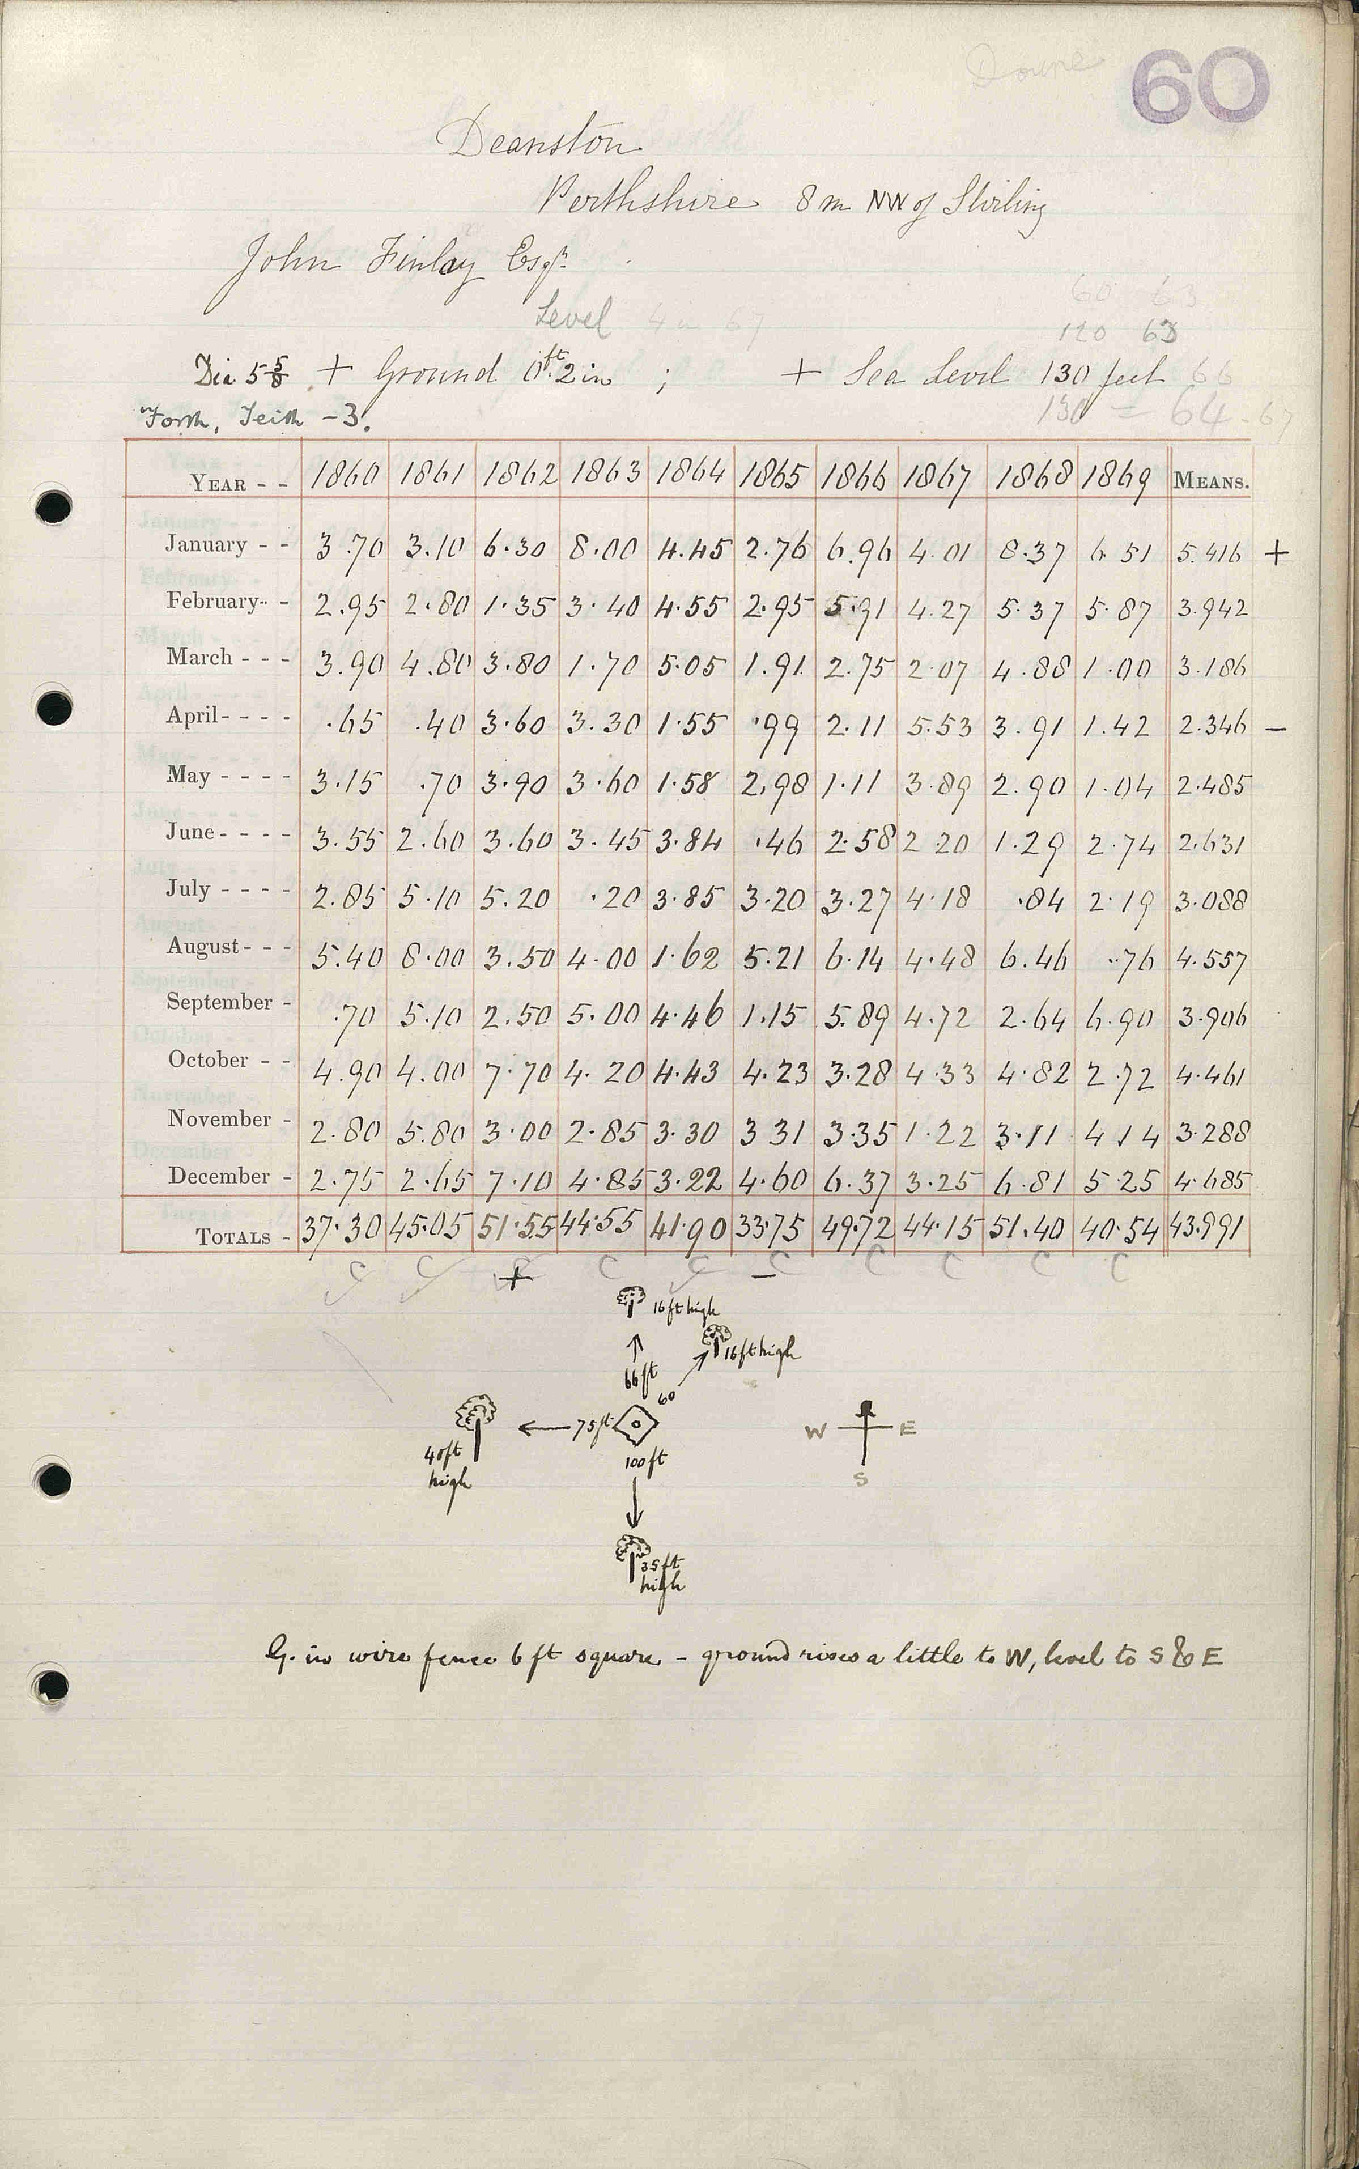 Doune
60
Deanston
Perthshire 8 m NW of Stirling
John Finlay Esqr.
Level 4 in 67
60 63
120 63
Dia 5 5/8 + Ground 0ft. 2 in ; + Sea Level 130 feet 66
Forth, Teith - 3. 130 = 64-67
YEAR - - 1860 1861 1862 1863 1864 1865 1866 1867 1868 1869 MEANS.
January - - 3.70 3.10 6.30 8.00 4.45 2.76 6.96 4.01 8.37 6.51 5.416 +
February - - 2.95 2.80 1.35 3.40 4.55 2.95 5.91 4.27 5.37 5.87 3.942
March - - - 3.90 4.80 3.80 1.70 5.05 1.91 2.75 2.07 4.88 1.00 3.186
April - - - - .65 .40 3.60 3.30 1.55 .99 2.11 5.53 3.91 1.42 2.346 -
May - - - - 3.15 .70 3.90 3.60 1.58 2.98 1.11 3.89 2.90 1.04 2.485
June - - - - 3.55 2.60 3.60 3.45 3.84 .46 2.58 2.20 1.29 2.74 2.631
July - - - - 2.85 5.10 5.20 .20 3.85 3.20 3.27 4.18 .84 2.19 3.088
August - - - 5.40 8.00 3.50 4.00 1.62 5.21 6.14 4.48 6.46 .76 4.557
September - .70 5.10 2.50 5.00 4.46 1.15 5.89 4.72 2.64 6.90 3.906
October - - 4.90 4.00 7.70 4.20 4.43 4.23 3.28 4.33 4.82 2.72 4.461
November - 2.80 5.80 3.00 2.85 3.30 3.31 3.35 1.22 3.11 4.14 3.288
December - 2.75 2.65 7.10 4.85 3.22 4.60 6.37 3.25 6.81 5.25 4.685
TOTALS - 37.30 45.05 51.55 44.55 41.90 33.75 49.72 44.15 51.40 40.54 43.991
C C + C C C - C C C C C
16 ft high
16 ft high
66 ft
60
75 ft
40 ft
high
100 ft
W E
S
35 ft
high
G. in wire fence 6 ft square - ground rises a little to W, level to S & E